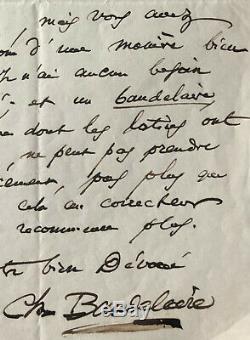 mais vous avez
d'une manière bien
n'ai aucun besoin
et un baudelaire
dont les lotries ont
ne peut pas prendre
cement, pas plus que
cela au correcteur
recommence plus.
bien Dévoué
Ch Baudelaire